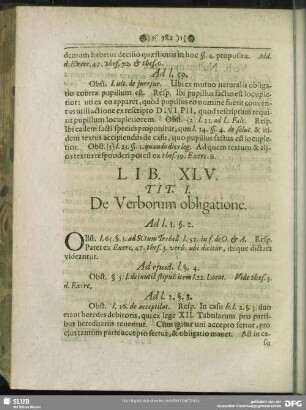 )( 782 )(
demum habetur decisio quæstionis in hoc §. 4. propositæ. Add.
d. Exerc. 47. thes. 72. & thes. 0.
Ad l. 59.
Obst. l. ult. de jurejur. Ubi ex mutuo naturalis obliga-
tio contra pupillum est. Resp. ibi pupillus factus est locuple-
tior: uti ex eo apparet, quod pupillus eo nomine fuerit conven-
tus utili actione ex rescripto D. VI. PII, quod rescriptum requi-
rit pupillum locupletiorem. Obst. (2) l. 21. ad L. Falc. Resp.
Ibi eadem facti species proponitur, quæ d. l. 14. §. 4. de solut. & in-
dem textus accipiendi de casu, quo pupillus factus est locupletior.
Obst. (3) l. 25. §. 1. quando dies leg. Ad quem textum & ali-
os textus responderi potest ex thes. 10. Exerc. 0.
LIB. XLV.
TIT. I.
De Verborum obligatione.
Ad l. 1. §. 2.
OBst. l. 65. §. 3. ad SCtum Trebell. l. 52. in f. de O. & A. Resp.
Patet ex Exerc. 47. thes. 3. verb. ubi dicitur, ibique dictata
videantur.
Ad ejusd. l. §. 4.
Obst. § 5. I. de inutil. stipul. item l. 22. Locat. Vide thes. 3.
d. Exerc.
Ad l. 2. §. 3.
Obst. l. 10. de acceptilat. Resp. In casu h. l. 2. §. 3. duo
erant heredes debitoris, qui ex lege XII. Tabularum pro parti-
bus hereditariis tenentur. Cum igitur uni accepto fertur, pro
ejus tantum parte accepto fertur, & obligatio manet. Ast in ca-
su